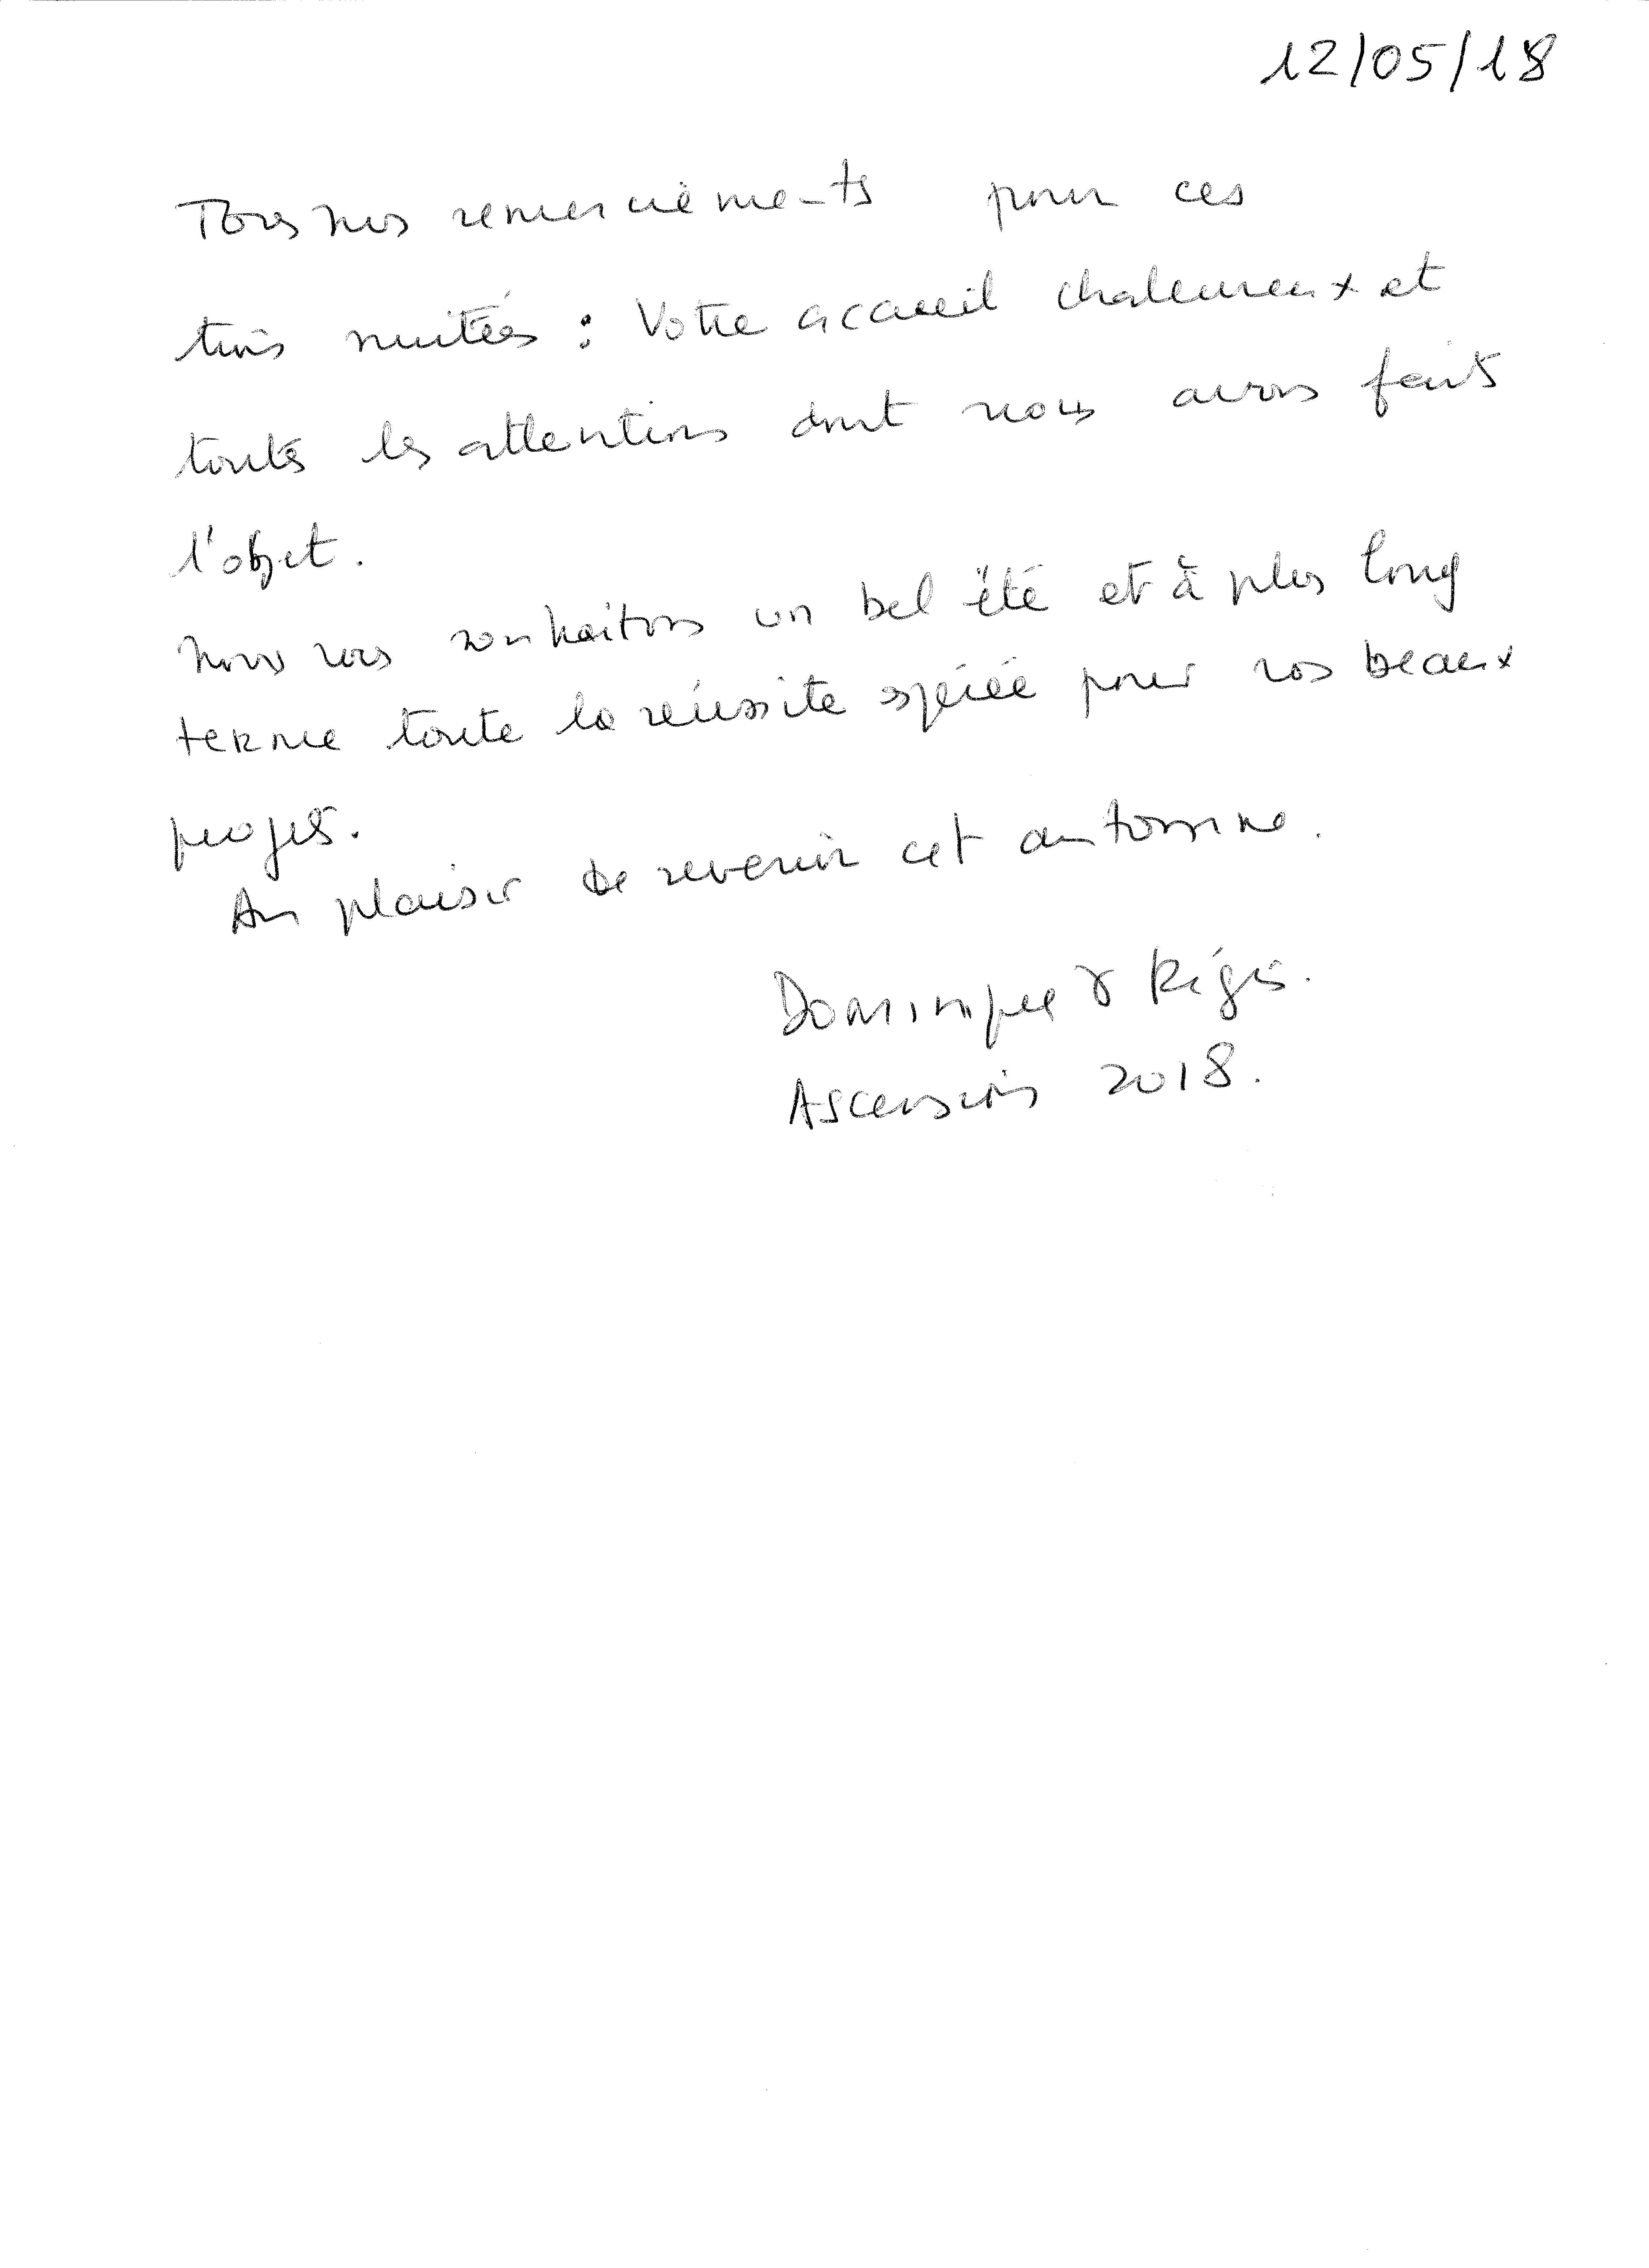 12/05/18
Tous nos remerciements pour ces
trois nuitées : Votre accueil chaleureux et
toutes les attentions dont nous avons fait
l'objet.
Nous vous souhaitons un bel été et à plus long
terme toute la réussite espérée pour vos beaux
projets.
Au plaisir de revenir cet automne.
Dominique & Régis.
Ascension 2018.